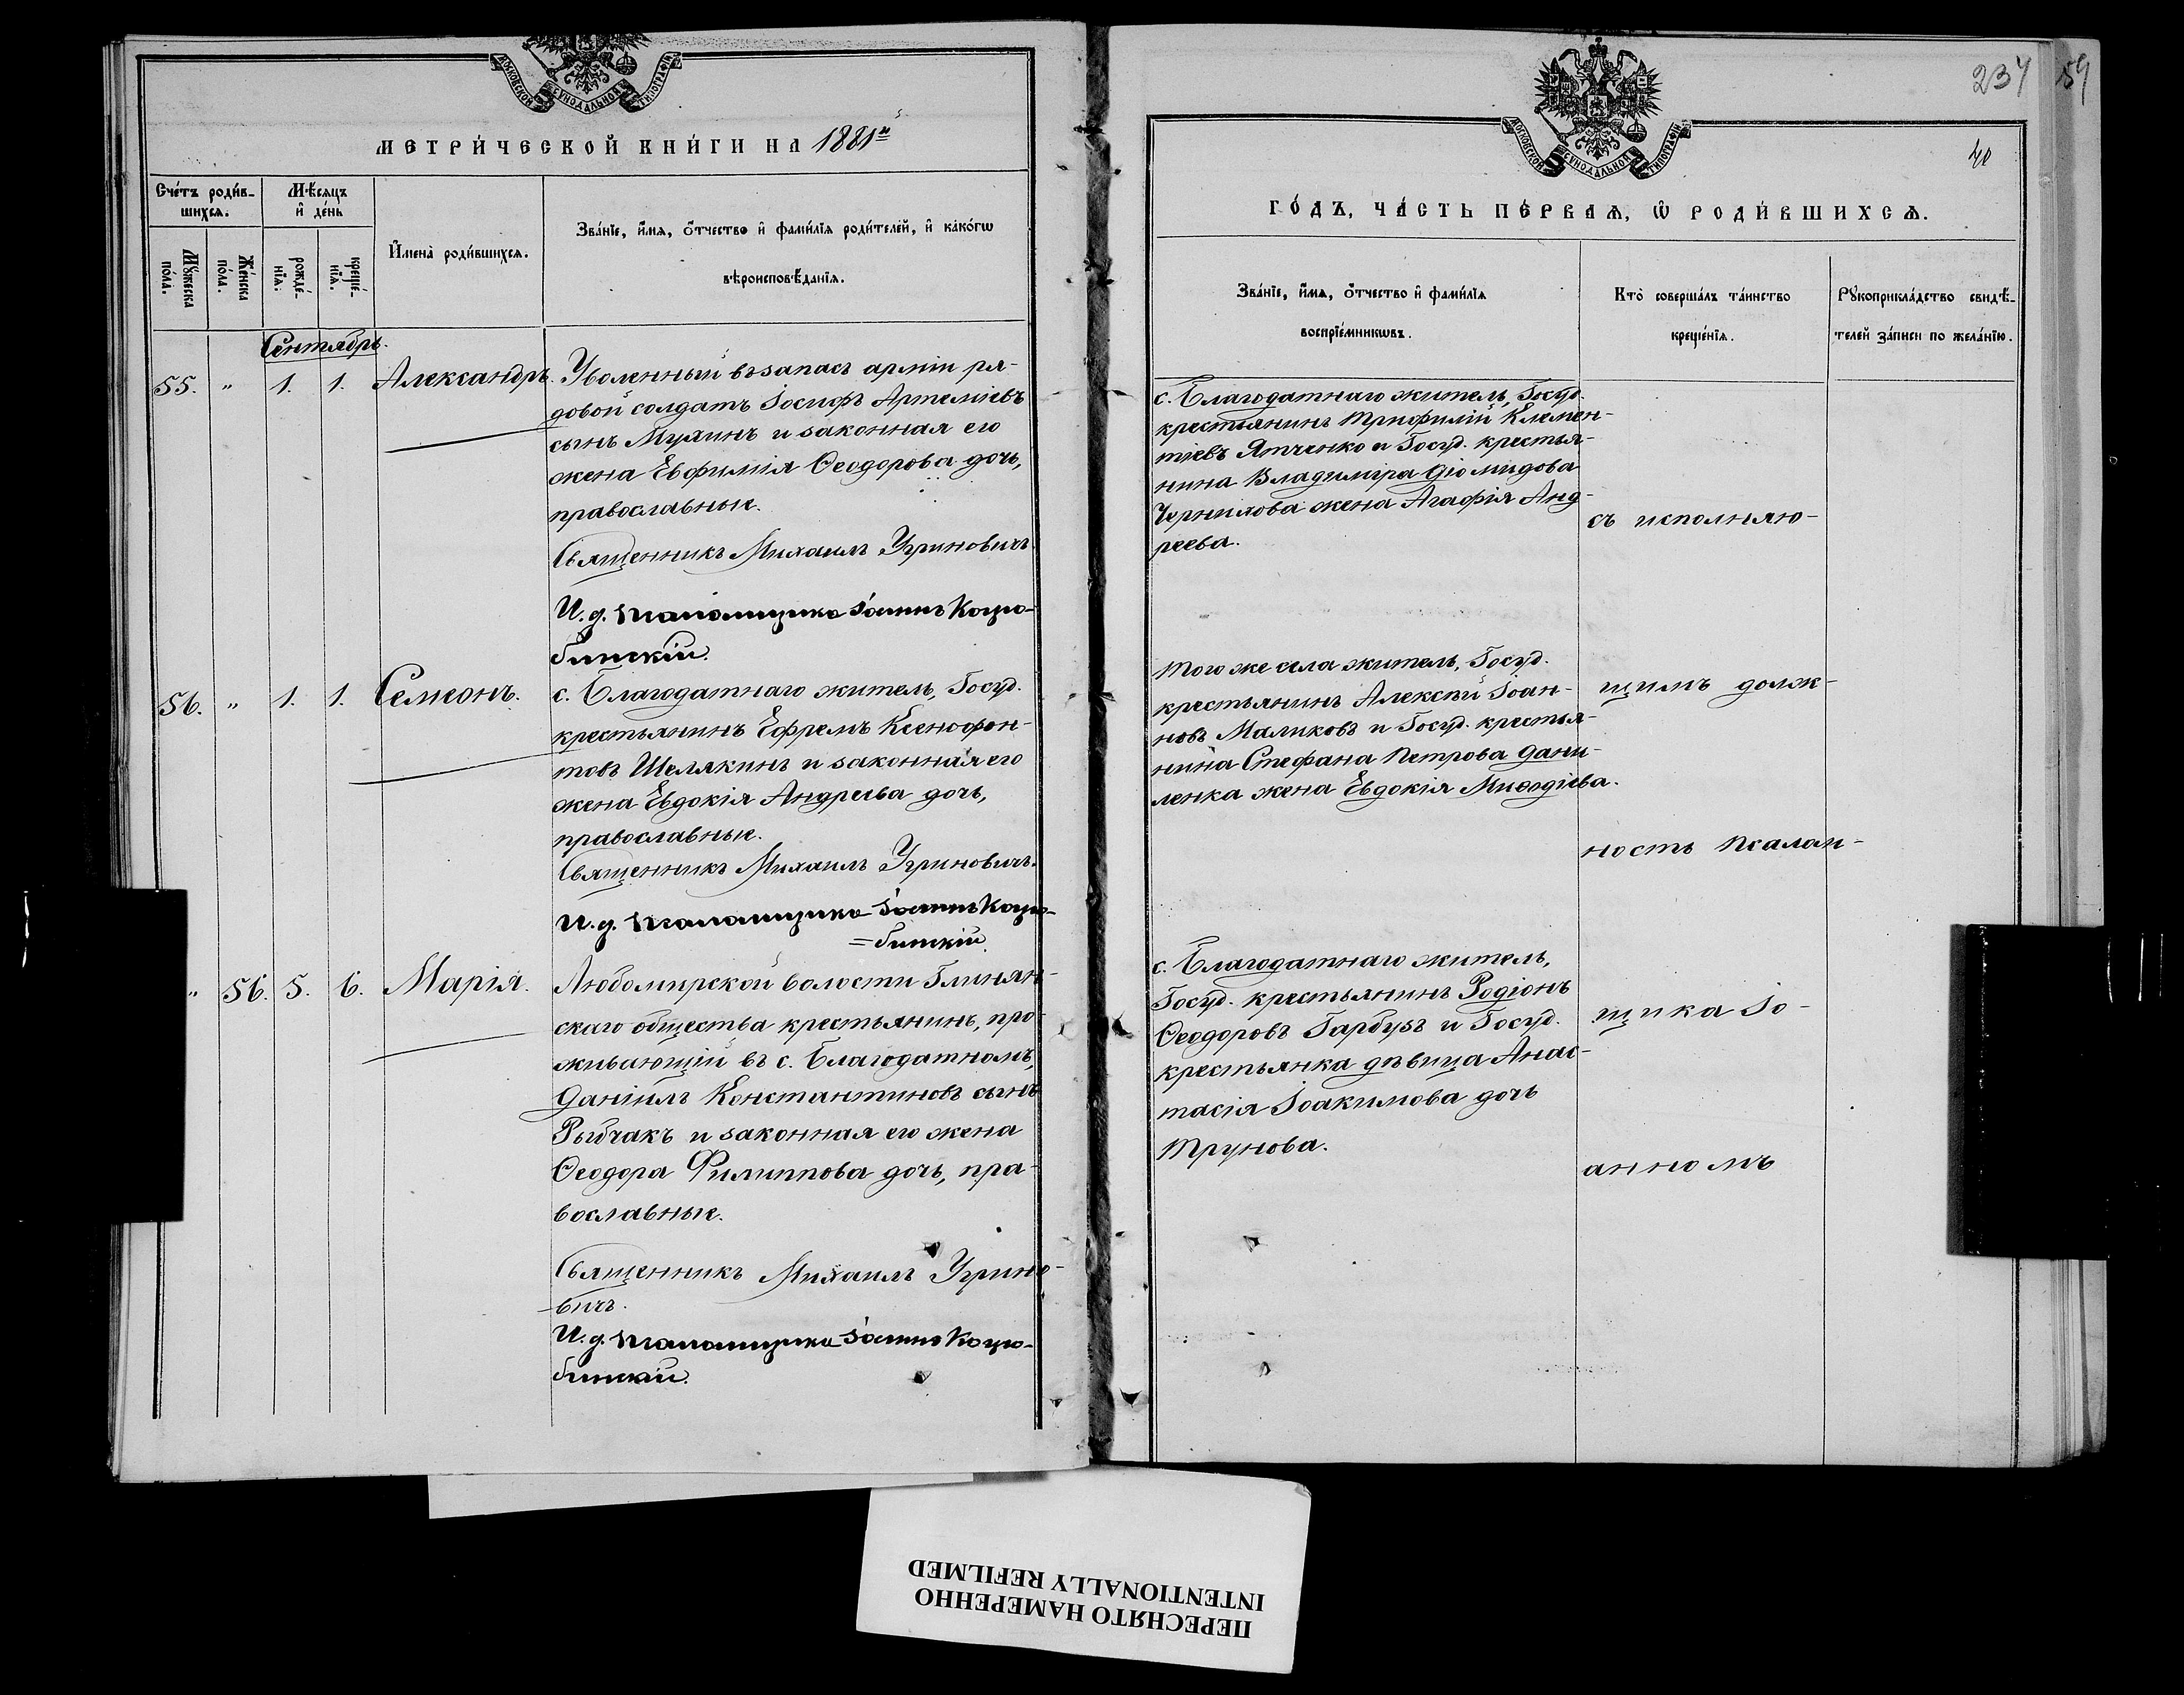 МОСКОВСКОЙ СѴНОДАЛЬНОЙ ТИПОГРАФІИ
МЕТРИ́ЧЕСКОЙ КНИ́ГИ НА 1881й
Сче́тъ роди́в-
шихся.
Мѣ́сяцъ
и҆ де́нь
Мꙋ́жеска
по́ла.
Же́нска
по́ла.
рожде́-
нїѧ.
креще́-
нїѧ.
И҆мена̀ роди́вшихся.
Зва́нїе, и҆́мя, ѻ҆́тчество и҆ фами́лїѧ роди́телей, и҆ како́гѡ
вѣроисповѣ́данїѧ.
Сентябрь.
55. " 1. 1. Александръ.
Уволенный въ запасъ арміи ря-
довой солдатъ Іосифъ Артеміевъ
сынъ Мухинъ и законная его
жена Евфимія Ѳеодорова дочь,
православные.
Священникъ Михаилъ Угриновичъ.
И. д. псаломщика Іоаннъ Коцю-
бинскій.
56. " 1. 1. Симеонъ.
с. Благодатнаго житель, Госуд.
крестьянинъ Ефремъ Ксенофон-
товъ Шелякинъ и законная его
жена Евдокія Андреева дочь,
православные.
Священникъ Михаилъ Угриновичъ.
И. д. псаломщика Іоаннъ Коцю-
=бинскій.
" 56. 5. 6. Марія.
Любомирской волости Глинян-
скаго общества крестьянинъ, про-
живающій въ с. Благодатномъ,
Даніилъ Константиновъ сынъ
Рыбчакъ и законная его жена
Ѳеодора Филиппова дочь, пра-
вославные.
Священникъ Михаилъ Угрино-
-вичъ.
И. д. псаломщика Іоаннъ Коцю-
бинскій.
237
59
40
МОСКОВСКОЙ СѴНОДАЛЬНОЙ ТИПОГРАФІИ
ГО́ДЪ, ЧА́СТЬ ПЕ́РВАѦ, Ѡ РОДИ́ВШИХСѦ.
Зва́нїе, и҆́мя, ѻ҆́тчество и҆ фами́лїѧ
воспрїе́мникѡвъ.
Кто̀ соверша́лъ та́инство
креще́нїѧ.
Рꙋкоприкла́дство свидѣ́-
телей за́писи по жела́нїю.
с. Благодатнаго житель, Госуд.
крестьянинъ Трифилій Клемен-
тіевъ Ятченко и Госуд. крестья-
нина Владиміра Діомидова
Чернихова жена Агафія Анд-
реева.
съ исполняю-
Того же села житель, Госуд.
крестьянинъ Алексѣй Іоан-
новъ Маликовъ и Госуд. крестья-
нина Стефана Петрова Дани-
ленка жена Евдокія Миѳодіева.
щимъ долж-
ность псалом-
с. Благодатнаго житель,
Госуд. крестьянинъ Родіонъ
Ѳеодоровъ Гарбузъ и Госуд.
крестьянка дѣвица Анас-
тасія Іоакимова дочь
Трунова.
щика Іо-
анномъ
ПЕРЕСНЯТО НАМЕРЕННО
INTENTIONALLY REFILMED